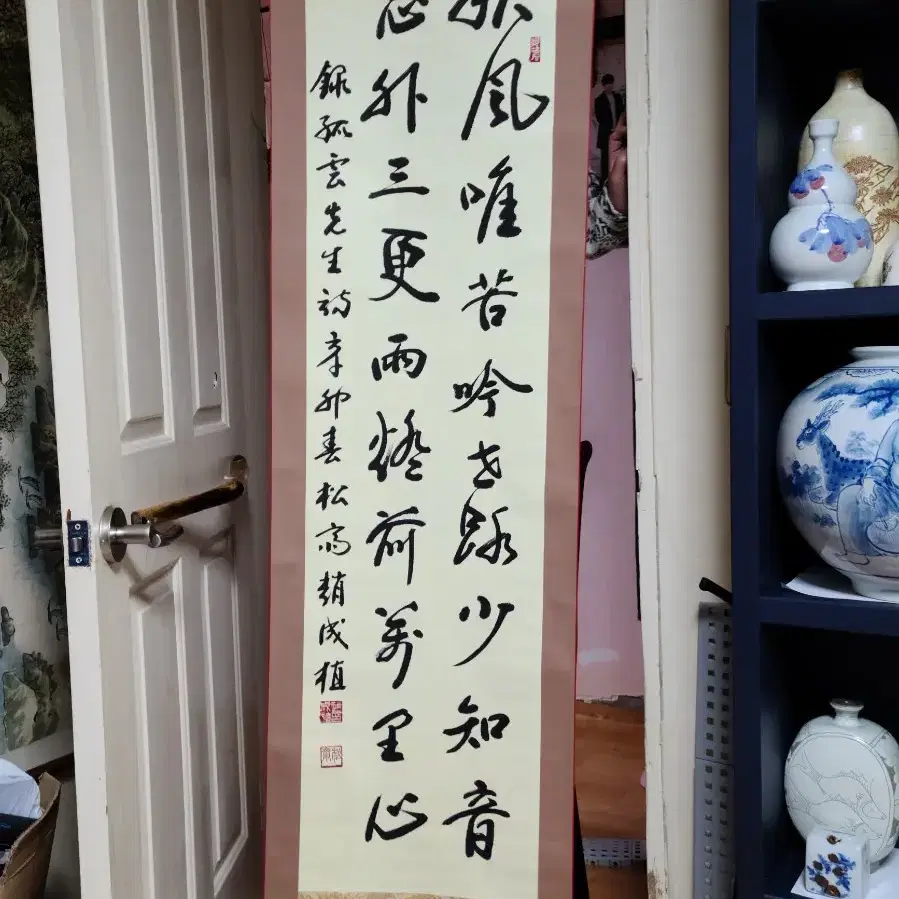 秋風唯苦吟世路少知音
窓外三更雨燈前萬里心
錄孤雲先生詩辛卯春松趙成植